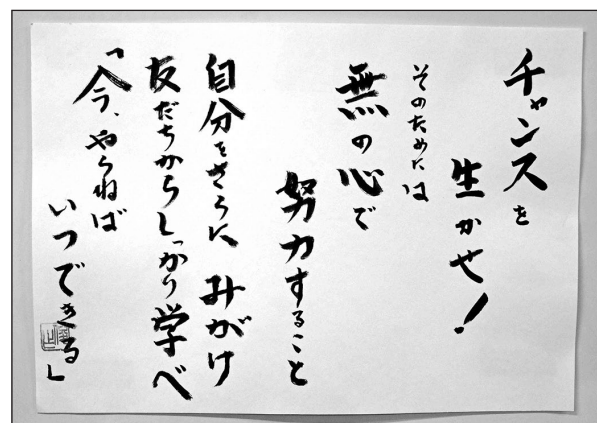 チャンスを
生かせ！
そのためには
無の心で
努力すること
自分をさらに みがけ
友だちからしっかり学べ
「今、やらねば
いつできる」